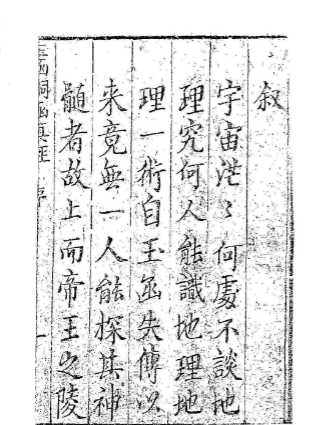 叙
宇宙茫〻何處不談地
理究何人能識地理地
理一術自玉函失傳以
来竟無一人能探其神
髓者故上而帝王之陵